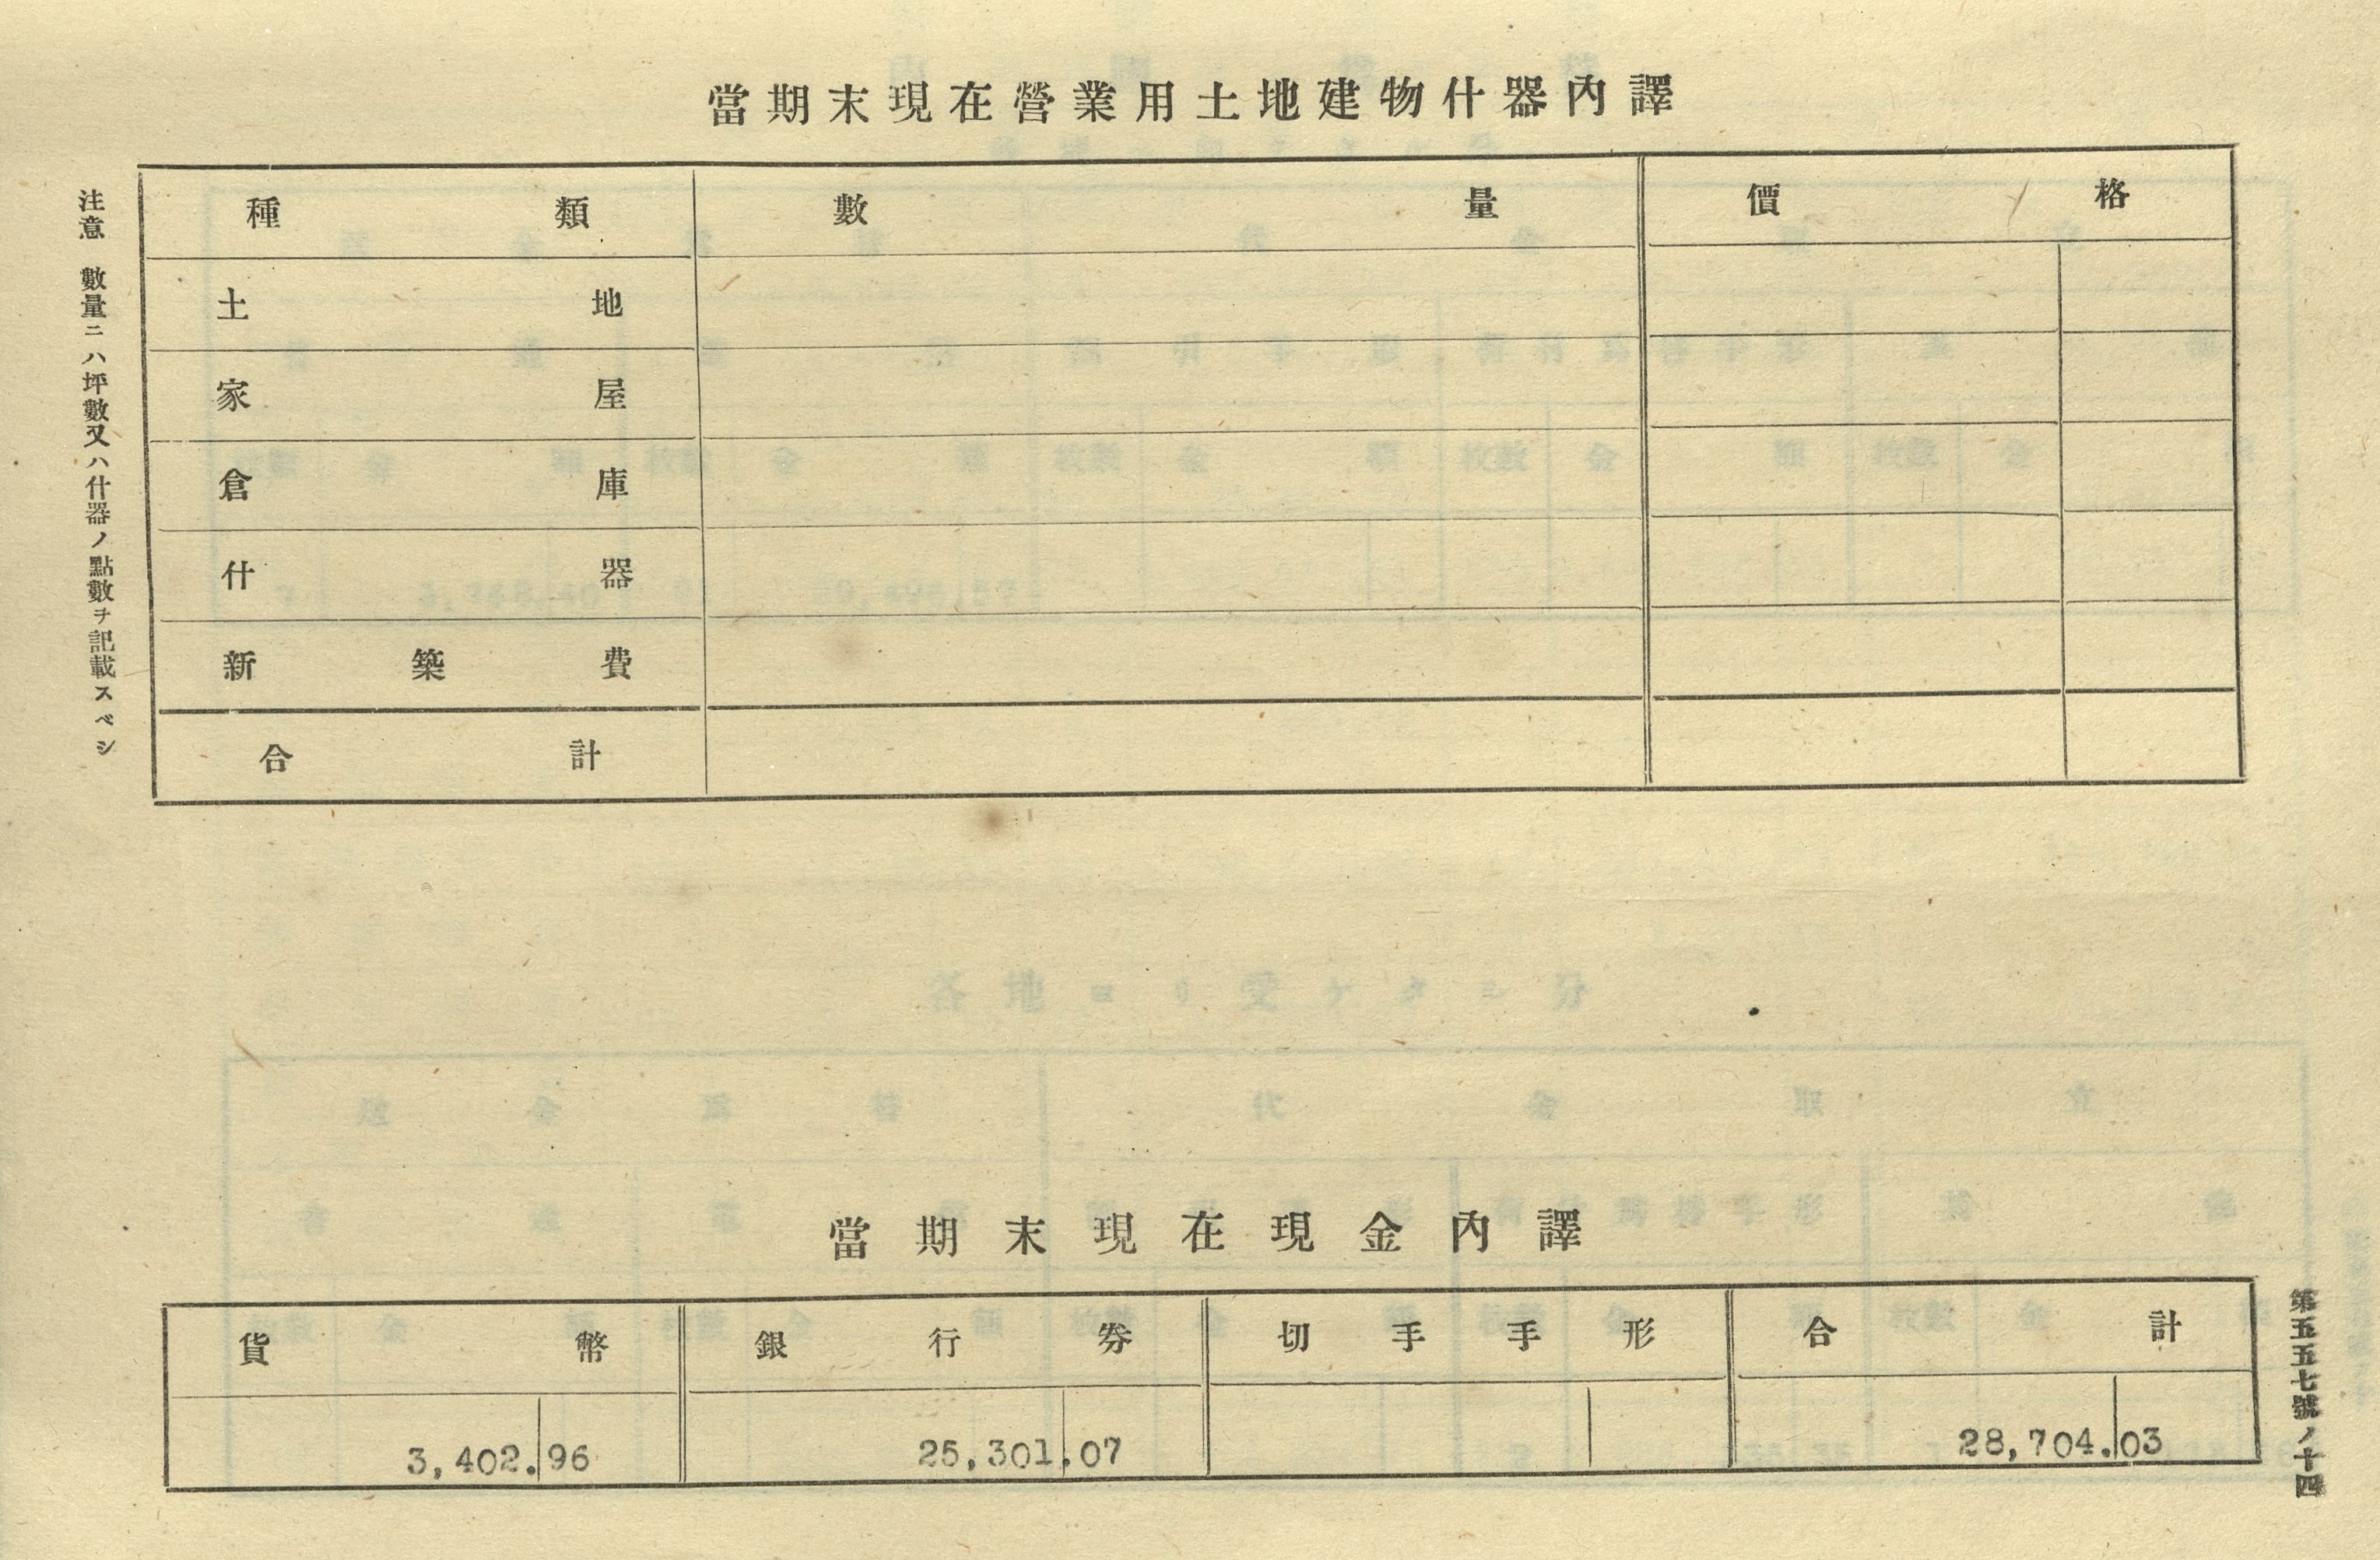 當期末現在營業用土地建物什器內譯
種類 數量 價格
土地
家屋
倉庫
什器
新築費
合計
注意 數量ニハ坪數又ハ什器ノ點數ヲ記載スベシ
各地ヨリ受ケタル分
當期末現在現金內譯
貨幣 銀行券 切手手形 合計
3,402.96 25,301.07 28,704.03
第五五七號ノ十四